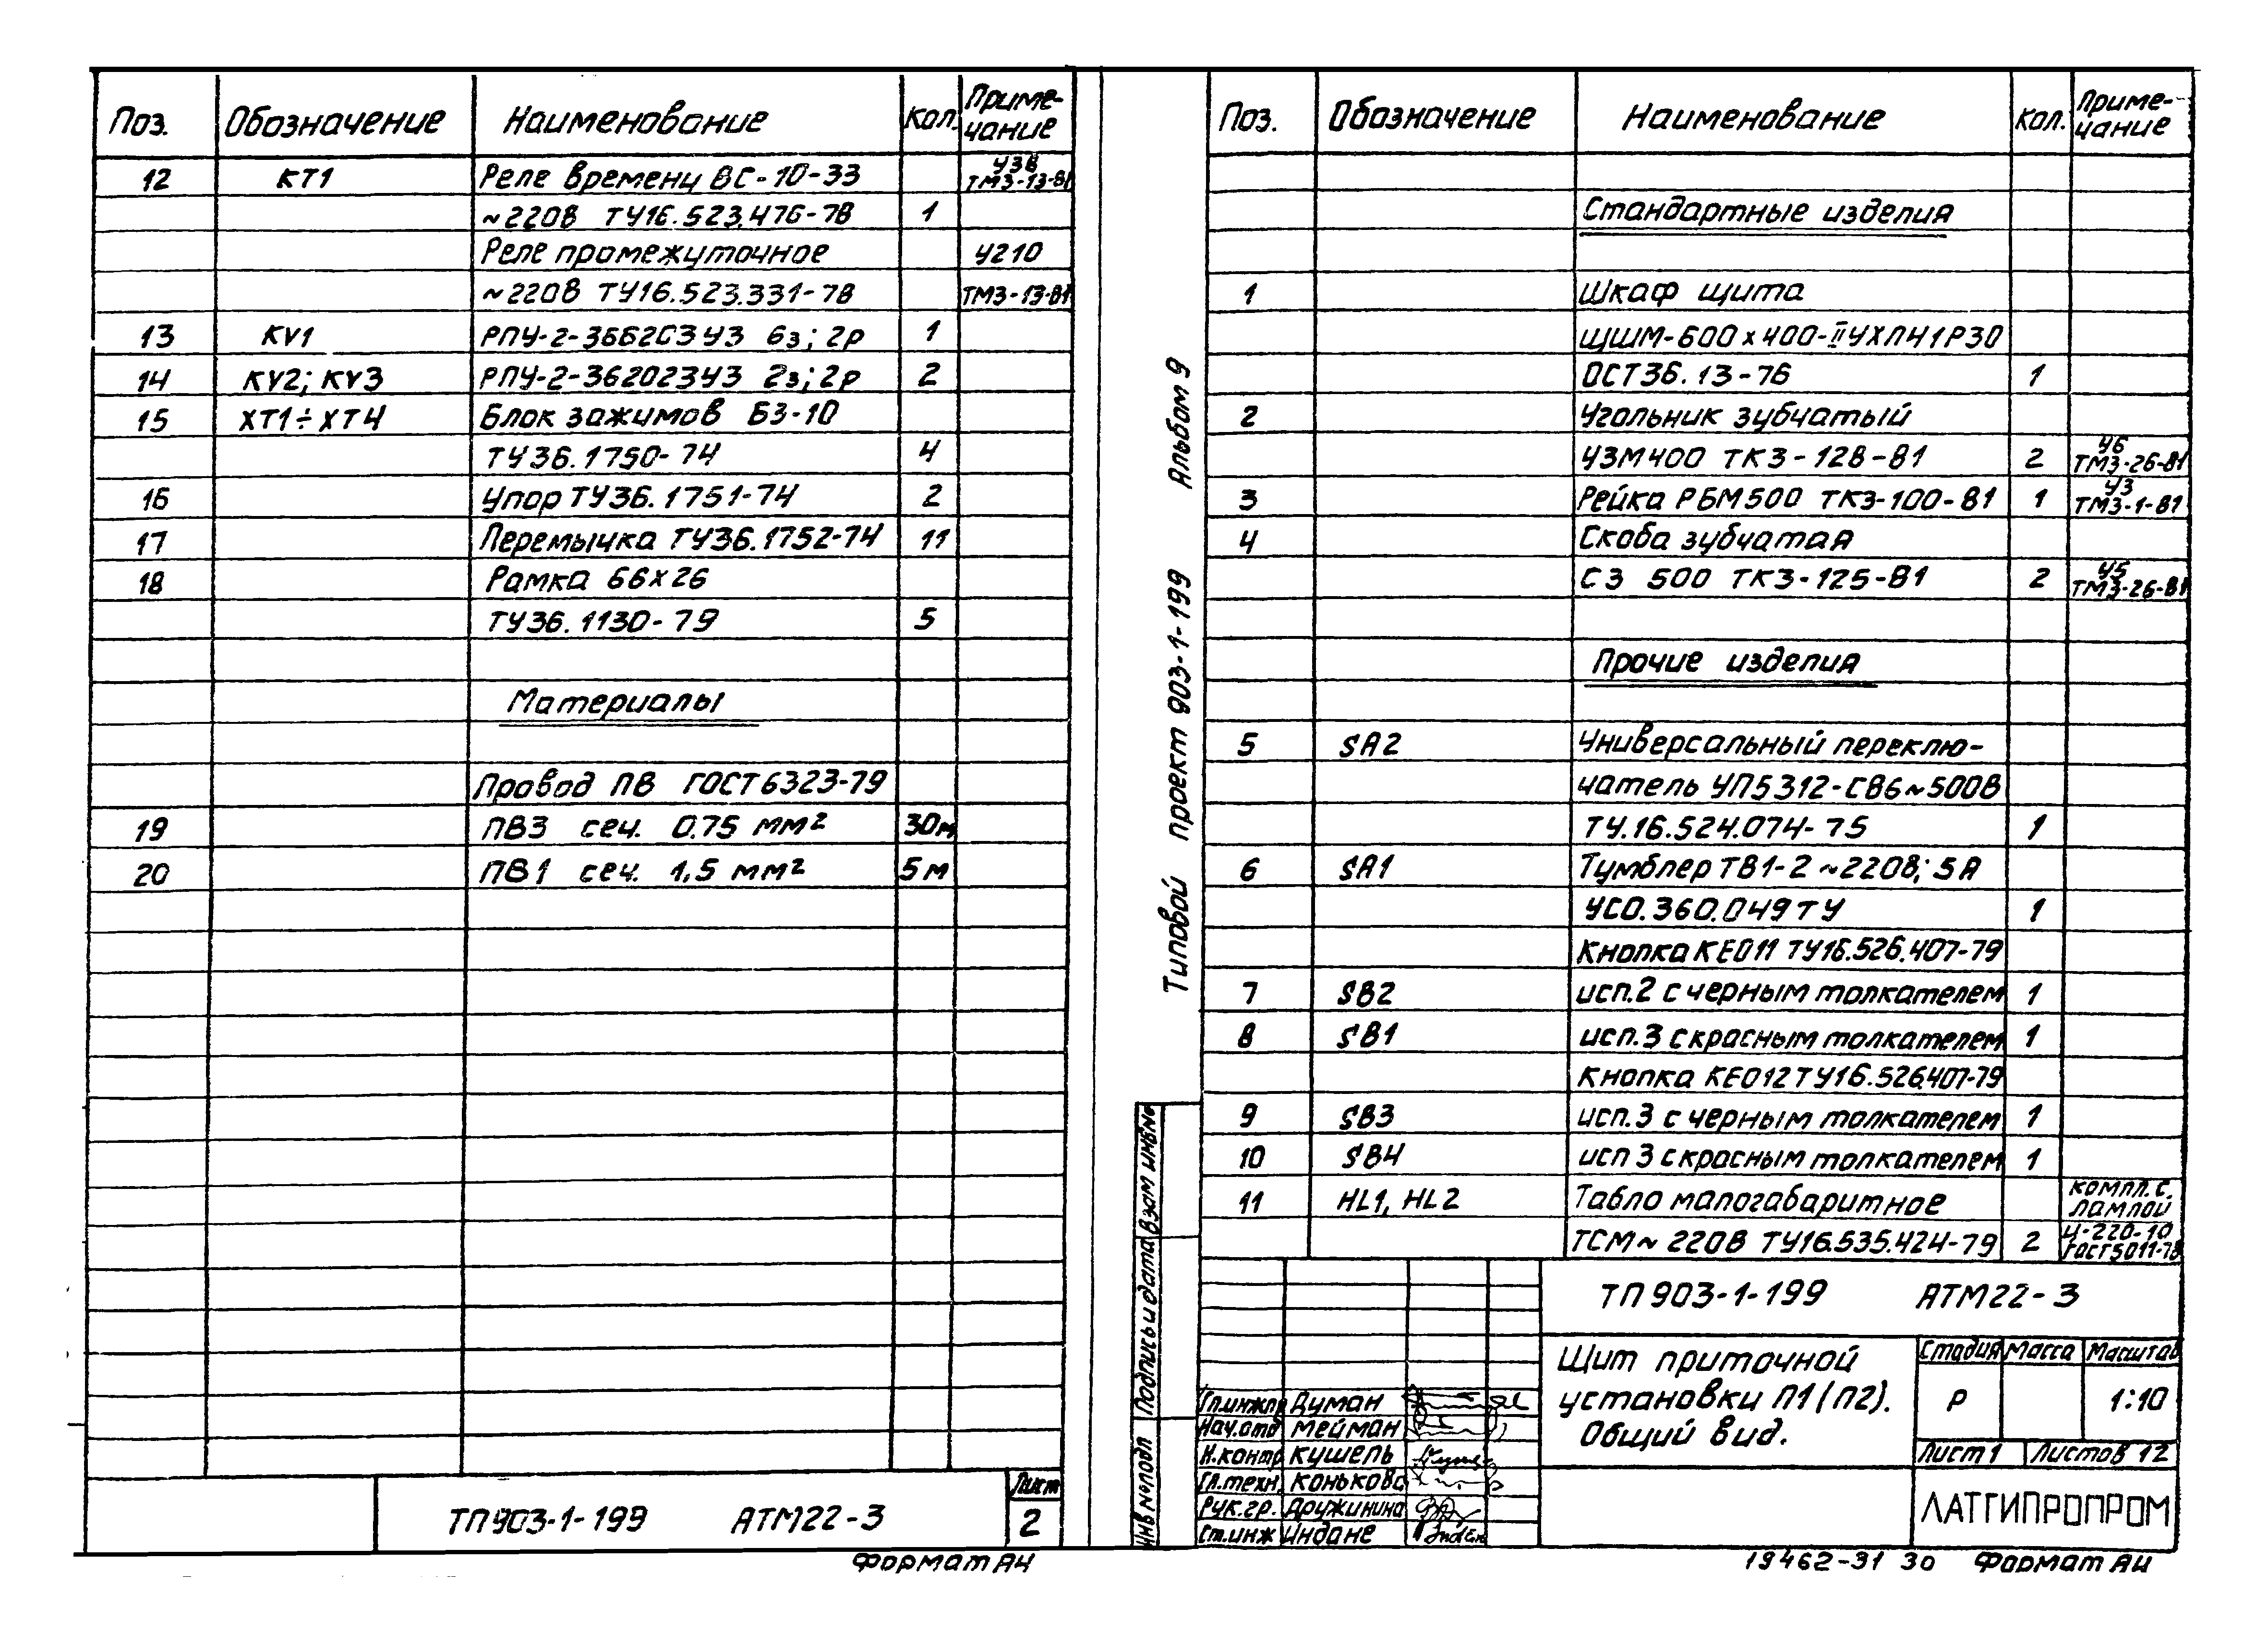 Поз. Обозначение Наименование Кол. Приме-
чание
12 КТ1 Реле времени ВС-10-33 У38
ТМ3-13-81
~220В ТУ16.523.476-78 1
Реле промежуточное У210
~220В ТУ16.523.331-78 ТМ3-13-81
13 KV1 РПУ-2-36620393 6з; 2р 1
14 KV2; KV3 РПУ-2-362023У3 2з; 2р 2
15 ХТ1÷ХТ4 Блок зажимов БЗ-10
ТУ36.1750-74 4
16 Упор ТУ36.1751-74 2
17 Перемычка ТУ36.1752-74 11
18 Рамка 66х26
ТУ36.1130-79 5
Материалы
Провод ПВ ГОСТ 6323-79
19 ПВ3 сеч. 0.75 мм² 30м
20 ПВ1 сеч. 1,5 мм² 5м
ТП903-1-199 АТМ22-3
Лист
2
Формат А4
Типовой проект 903-1-199 Альбом 9
Поз. Обозначение Наименование Кол. Приме-
чание
Стандартные изделия
1 Шкаф щита
ЩШМ-600х400-II УХЛ41Р30
ОСТ36.13-76 1
2 Угольник зубчатый
УЗМ400 ТК3-128-81 2 У6
ТМ3-26-81
3 Рейка РБМ500 ТК3-100-81 1 У3
ТМ3-1-81
4 Скоба зубчатая
СЗ 500 ТК3-125-81 2 У5
ТМ3-26-81
Прочие изделия
5 SA2 Универсальный переклю-
чатель УП5312-С86~500В
ТУ.16.524.074-75 1
6 SA1 Тумблер ТВ1-2 ~220В; 5А
УСО.360.049ТУ 1
Кнопка КЕ011 ТУ16.526.407-79
7 SB2 исп.2 с черным толкателем 1
8 SB1 исп.3 с красным толкателем 1
Кнопка КЕ012 ТУ16.526.407-79
9 SB3 исп.3 с черным толкателем 1
10 SB4 исп 3 с красным толкателем 1
11 HL1, HL2 Табло малогабаритное компл. с.
лампой
ТСМ~ 220В ТУ16.535.424-79 2 Ц-220-10
ГОСТ5011-78
Взам инв№
Подпись и дата
Инв № подл
ТП903-1-199 АТМ22-3
Щит приточной
установки П1(П2).
Общий вид.
Стадия Масса Масштаб
Р 1:10
Лист 1 Листов 12
ЛАТГИПРОПРОМ
Гл.инжпр Думан
Нач.отд Мейман
Н.контр Кушель
Гл.техн. Конькова
Рук.гр. Дружинина
Ст.инж Индане
19462-31 30 Формат А4